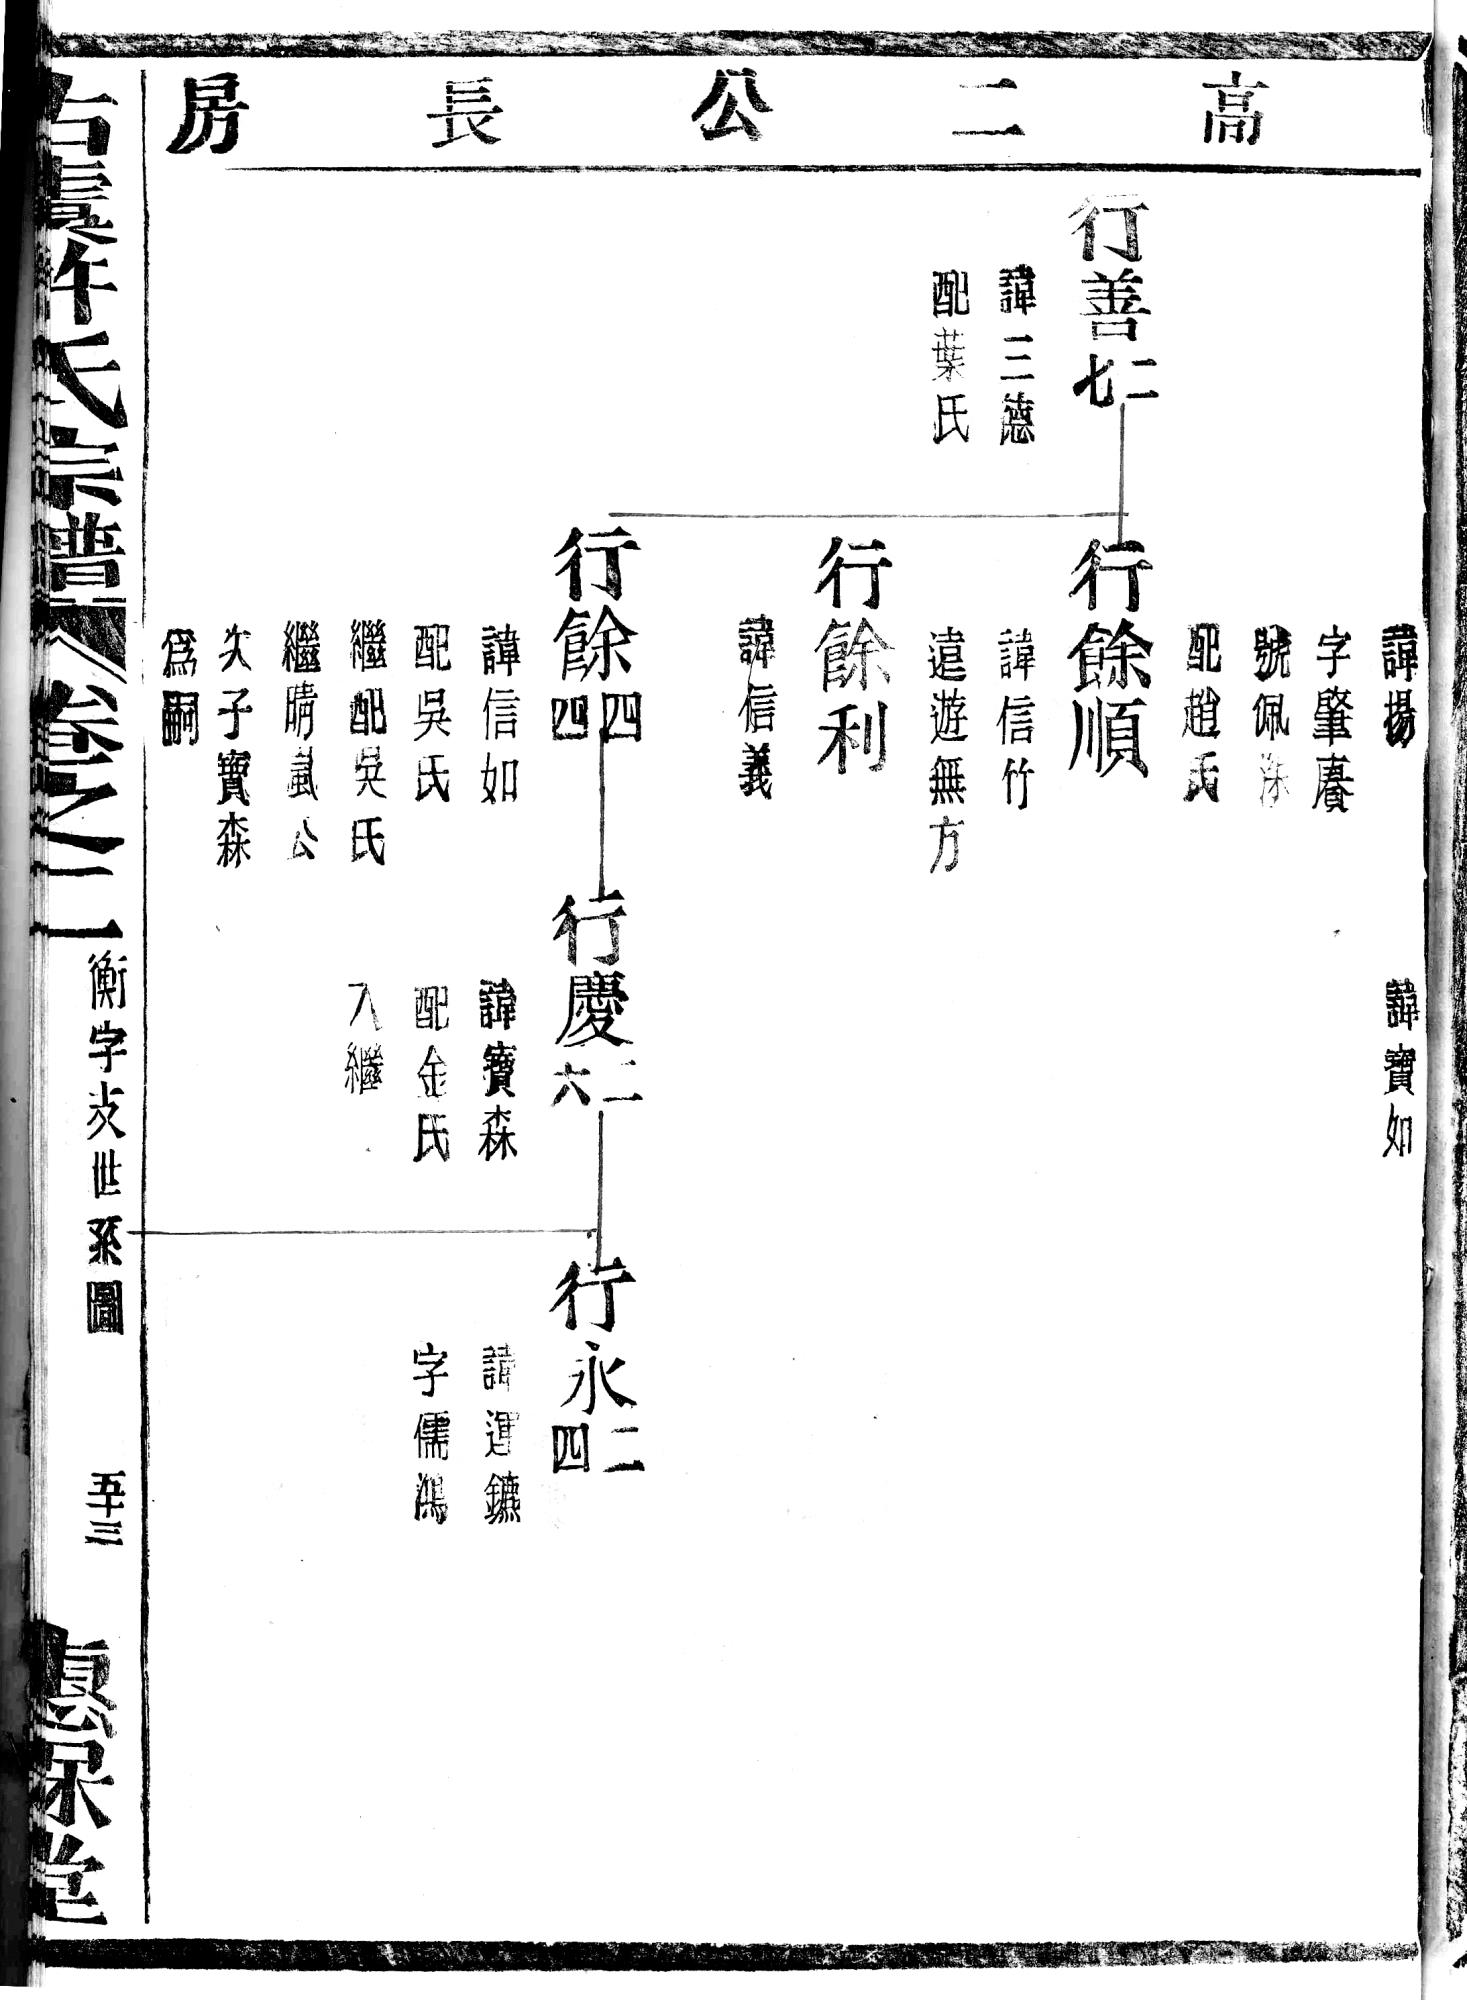 高二公長房
諱揚
字肇賡
號佩
配趙氏
諱寶如
行善二七
諱三德
配葉氏
行餘順
諱信竹
遠遊無方
行餘利
諱信義
行餘四四
諱信如
配吳氏
繼配吳氏
繼晴嵐公
次子寶森
為嗣
行慶二六
諱寶森
配金氏
入繼
行永二四
諱運鑣
字儒鴻
古虞許氏宗譜
卷之二
衡字支世系圖
五十三
惠保堂